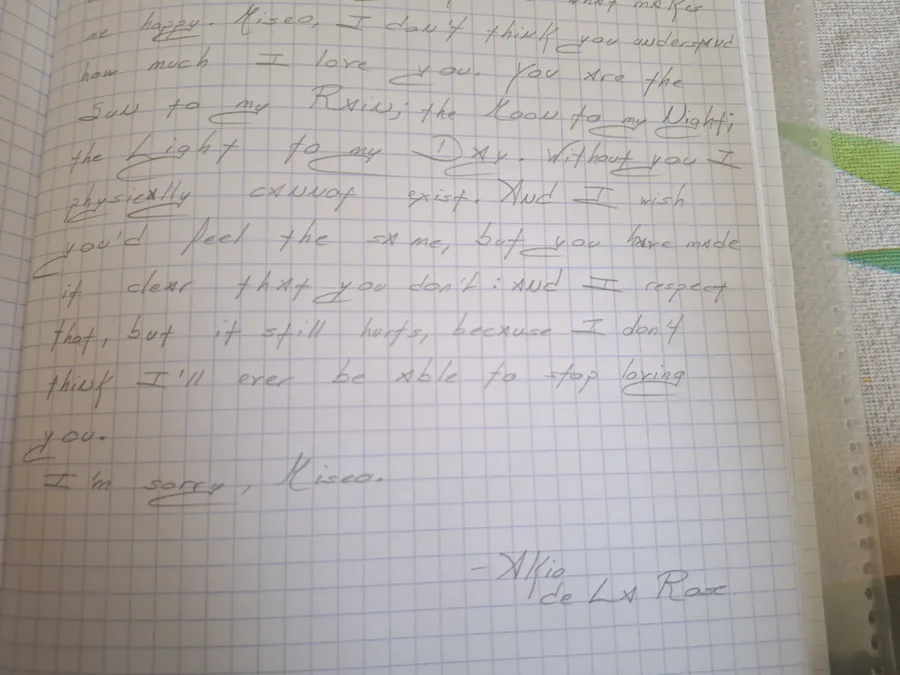 what makes
me happy. Miseo, I don't think you understand
how much I love you. You are the
Sun to my Rain; the Moon to my Night;
the Light to my Day. Without you I
physically cannot exist. And I wish
you'd feel the same, but you have made
it clear that you don't: and I respect
that, but it still hurts, because I don't
think I'll ever be able to stop loving
you.
I'm sorry, Miseo.
- Akio
de La